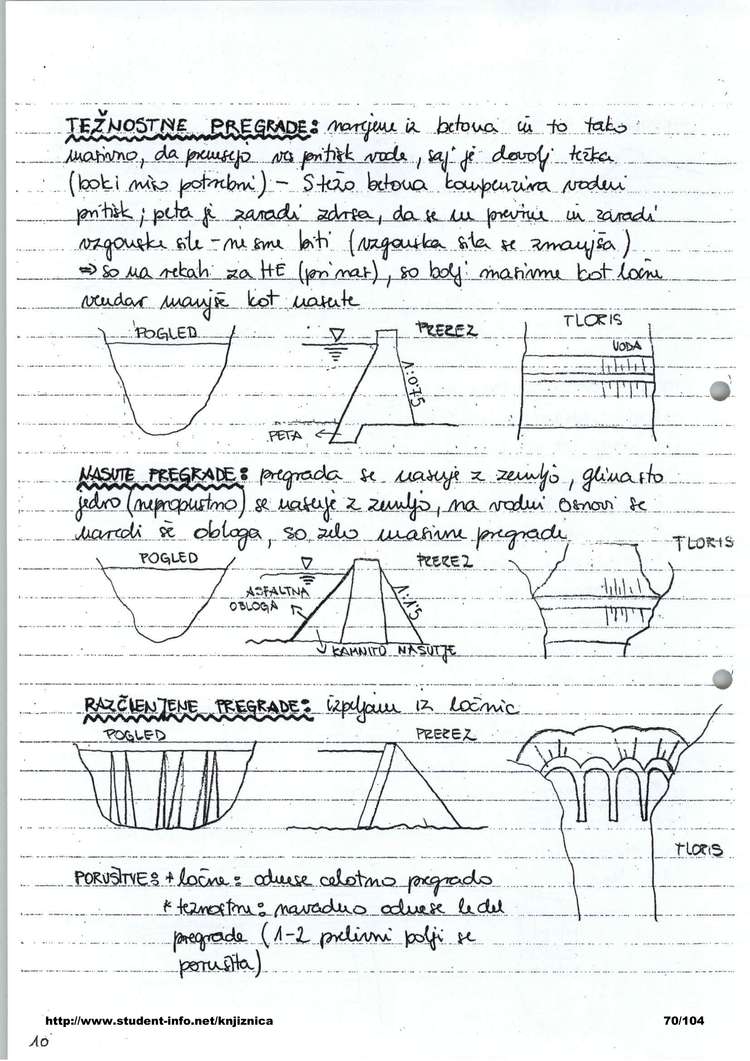 TEŽNOSTNE PREGRADE: narejene iz betona in to tako
masivno, da prenesejo ves pritisk vode, saj je dovolj težka
(boki niso potrebni) - Težo betona kompenzira vodni
pritisk; peta je zaradi zdrsa, da se ne prevrne in zaradi
vzgonske sile - ne sme biti (vzgonska sila se zmanjša)
⇒ so na rekah za HE (pri nas), so bolj masivne kot ločne
vendar manjše kot nasute
POGLED
PREREZ
1:0.75
PETA
TLORIS
VODA
NASUTE PREGRADE: pregrada se nasuje z zemljo, glinasto
jedro (nepropustno) se nasuje z zemljo, na vodni osnovi se
naredi še obloga, so zelo masivne pregrade
POGLED
PREREZ
ASFALTNA
OBLOGA
1:1.5
KAMNITO NASUTJE
TLORIS
RAZČLENJENE PREGRADE: izpeljane iz ločnic
POGLED
PREREZ
TLORIS
PORUŠITVE: * ločne: odnese celotno pregrado
* težnostne: navadno odnese le del
pregrade (1-2 prelivni polji se
porušita)
http://www.student-info.net/knjiznica
70/104
10